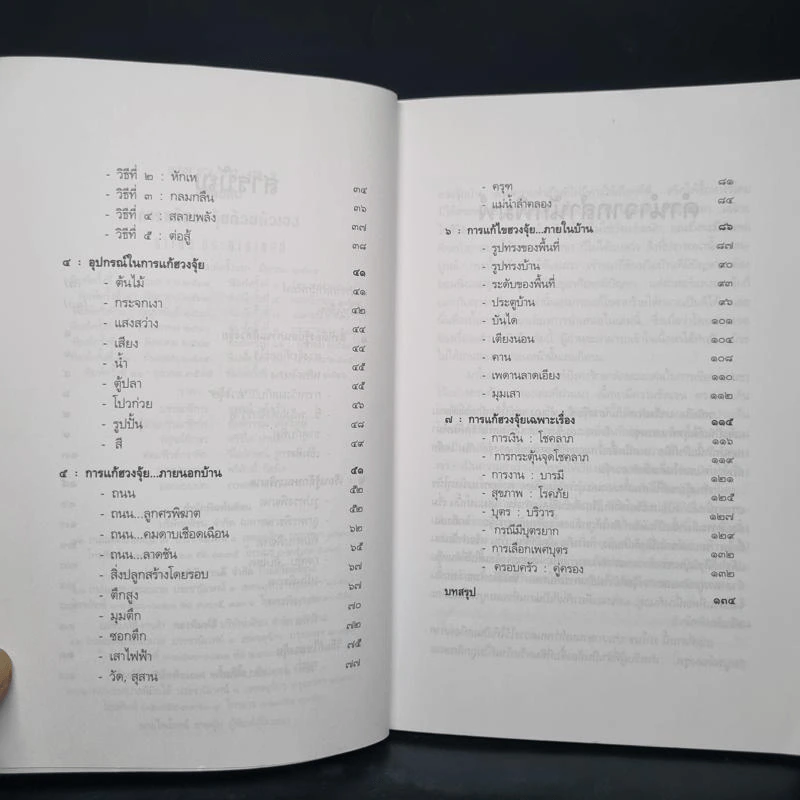 - วิธีที่ ๒ : หักเห ๓๔
- วิธีที่ ๓ : กลมกลืน ๓๖
- วิธีที่ ๔ : สลายพลัง ๓๗
- วิธีที่ ๕ : ต่อสู้ ๓๘
๔ : อุปกรณ์ในการแก้ฮวงจุ้ย ๔๑
- ต้นไม้ ๔๑
- กระจกเงา ๔๒
- แสงสว่าง ๔๔
- เสียง ๔๔
- น้ำ ๔๕
- ตู้ปลา ๔๕
- โปวก่วย ๔๖
- รูปปั้น ๔๘
- สี ๔๙
๕ : การแก้ฮวงจุ้ย...ภายนอกบ้าน ๕๑
- ถนน ๕๒
- ถนน...ลูกศรพิฆาต ๕๒
- ถนน...คมดาบเชือดเฉือน ๖๒
- ถนน...ลาดชัน ๖๕
- สิ่งปลูกสร้างโดยรอบ ๖๗
- ตึกสูง ๖๗
- มุมตึก ๗๐
- ซอกตึก ๗๒
- เสาไฟฟ้า ๗๕
- วัด, สุสาน ๗๗
- ครุฑ ๘๑
- แม่น้ำลำคลอง ๘๔
๖ : การแก้ไขฮวงจุ้ย...ภายในบ้าน ๘๖
- รูปทรงของพื้นที่ ๘๗
- รูปทรงบ้าน ๙๐
- ระดับของพื้นที่ ๙๓
- ประตูบ้าน ๙๖
- บันได ๑๐๑
- เตียงนอน ๑๐๔
- คาน ๑๐๘
- เพดานลาดเอียง ๑๑๐
- มุมเสา ๑๑๒
๗ : การแก้ฮวงจุ้ยเฉพาะเรื่อง ๑๑๕
- การเงิน : โชคลาภ ๑๑๖
- การกระตุ้นจุดโชคลาภ ๑๑๙
- การงาน : บารมี ๑๒๑
- สุขภาพ : โรคภัย ๑๒๕
- บุตร : บริวาร ๑๒๗
- กรณีมีบุตรยาก ๑๒๙
- การเลือกเพศบุตร ๑๓๒
- ครอบครัว : คู่ครอง ๑๓๒
บทสรุป ๑๓๔